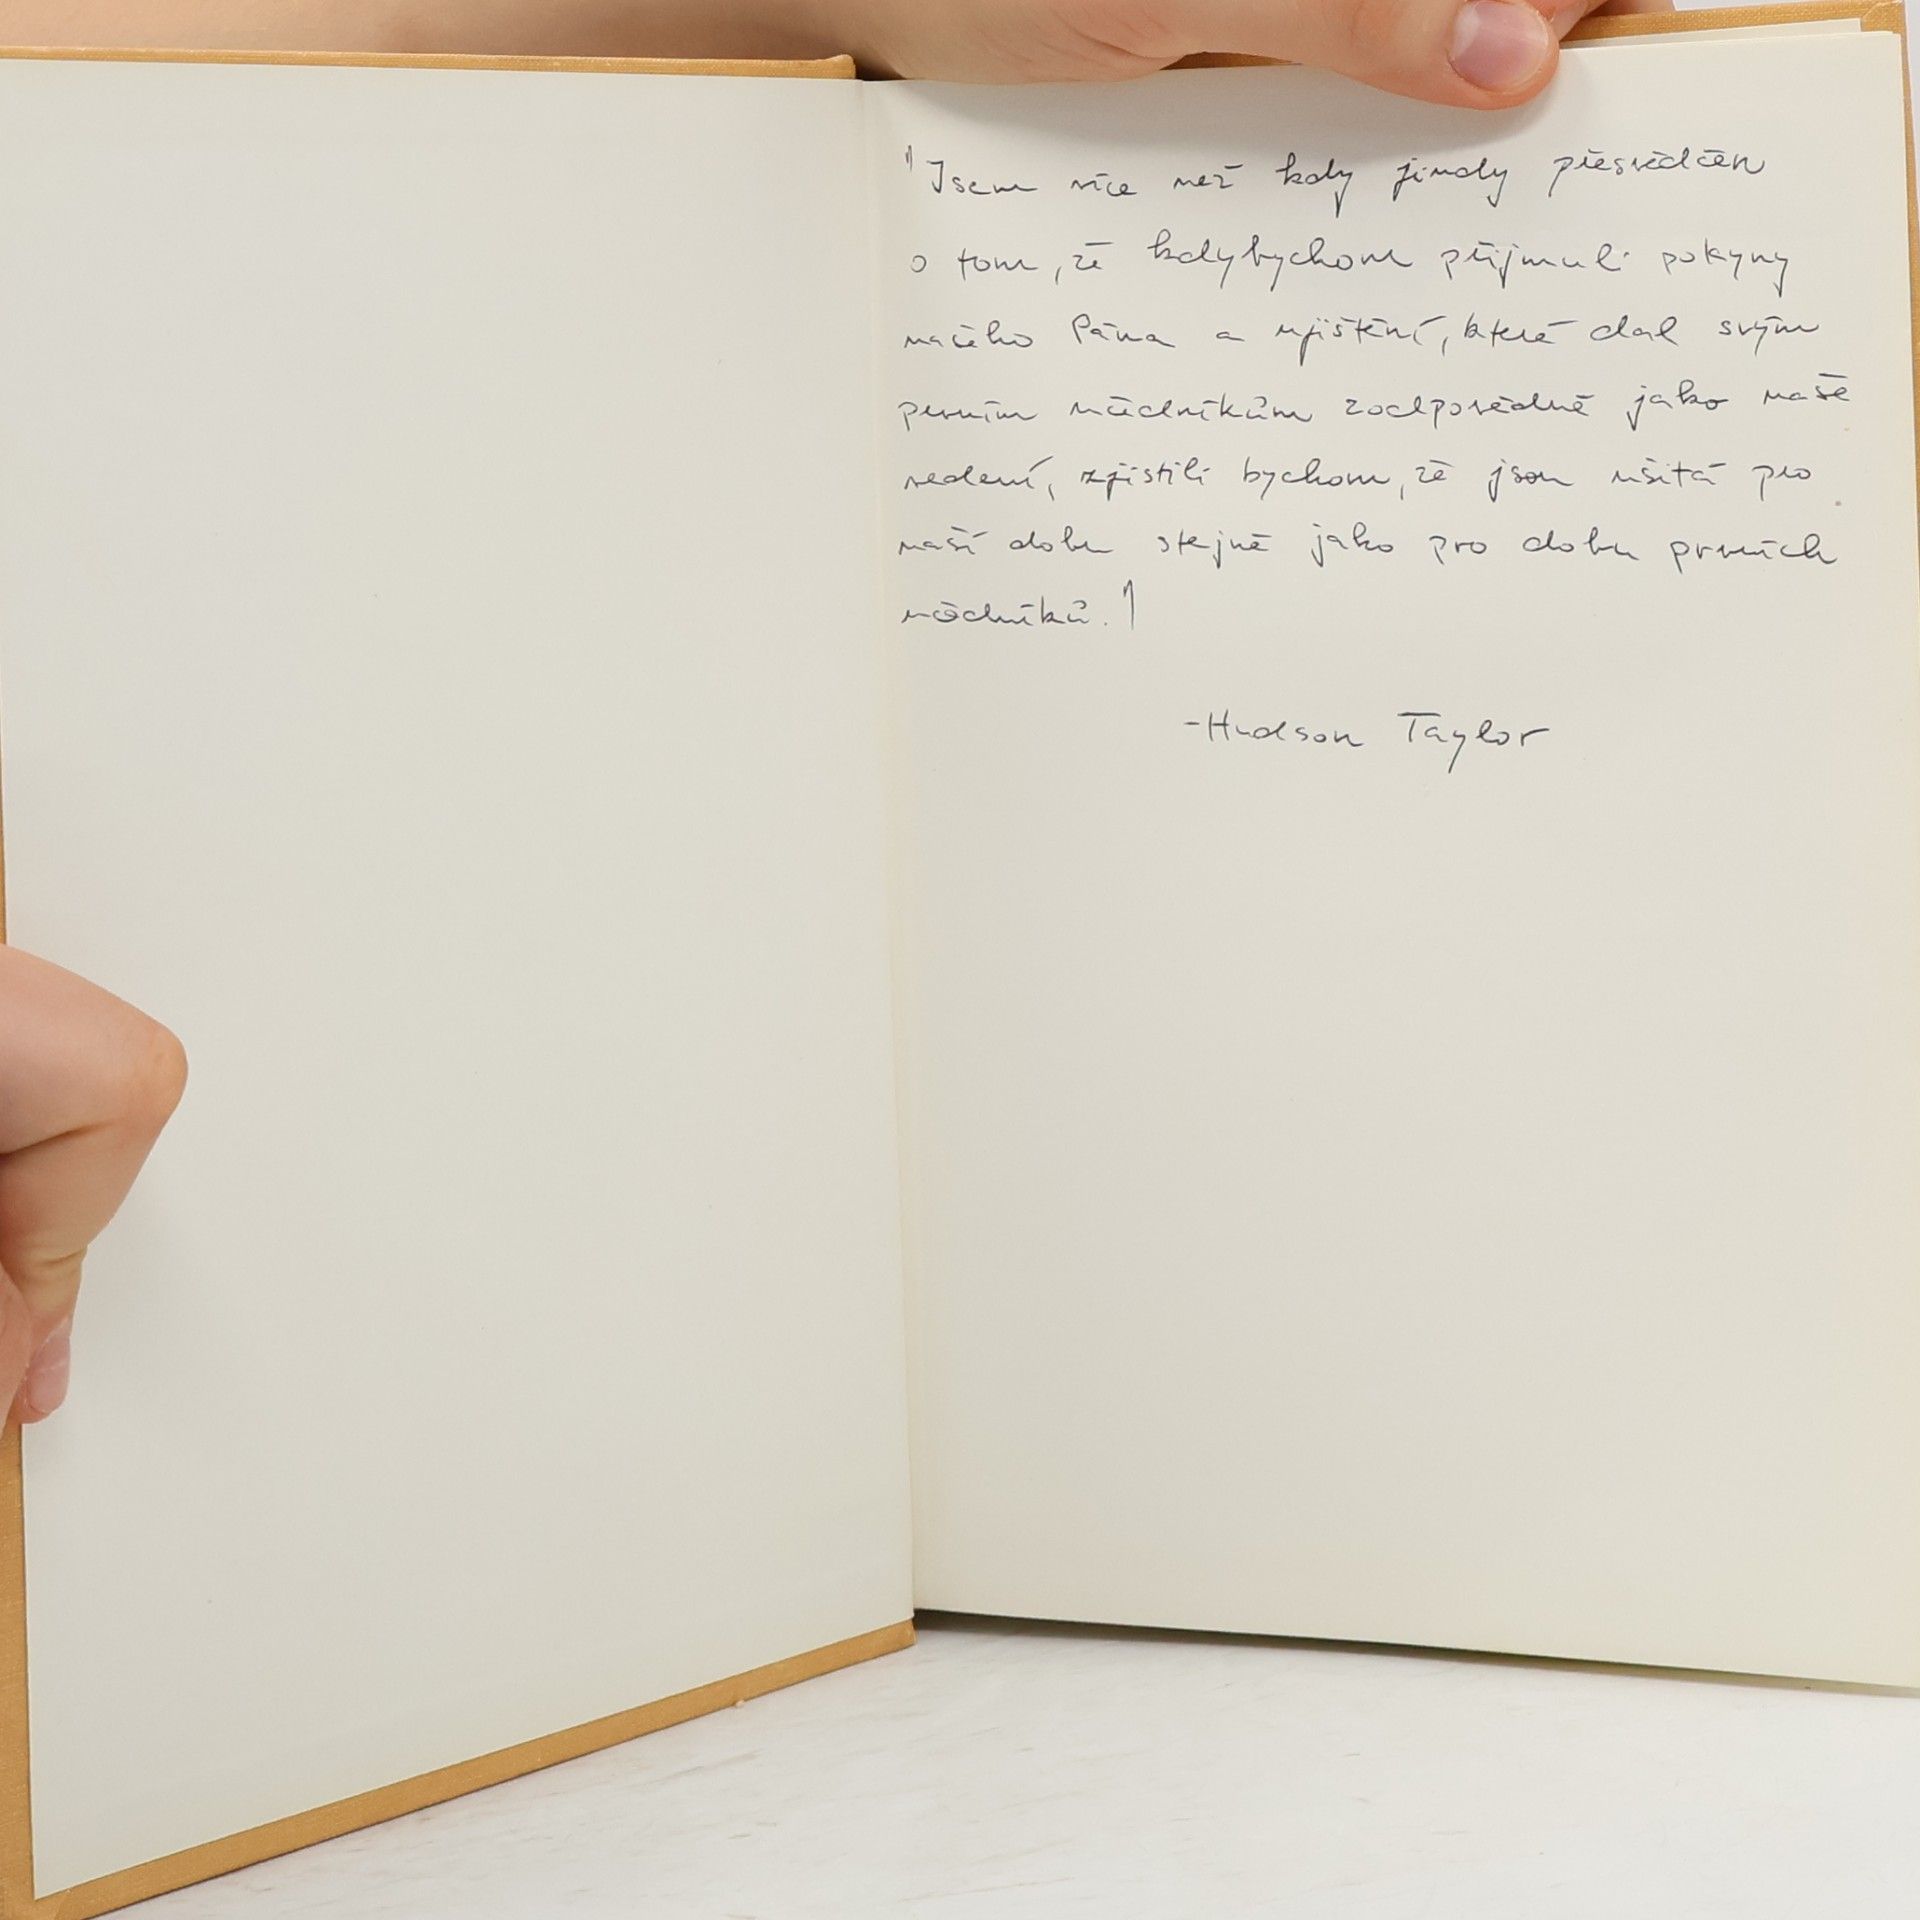 "Jsem více než kdy jindy přesvědčen
o tom, že kdybychom přijmuli pokyny
našeho Pána a ujištění, které dal svým
prvním učedníkům zodpovědně jako naše
vedení, zjistili bychom, že jsou ušitá pro
naší dobu stejně jako pro dobu prvních
učedníků."
-Hudson Taylor